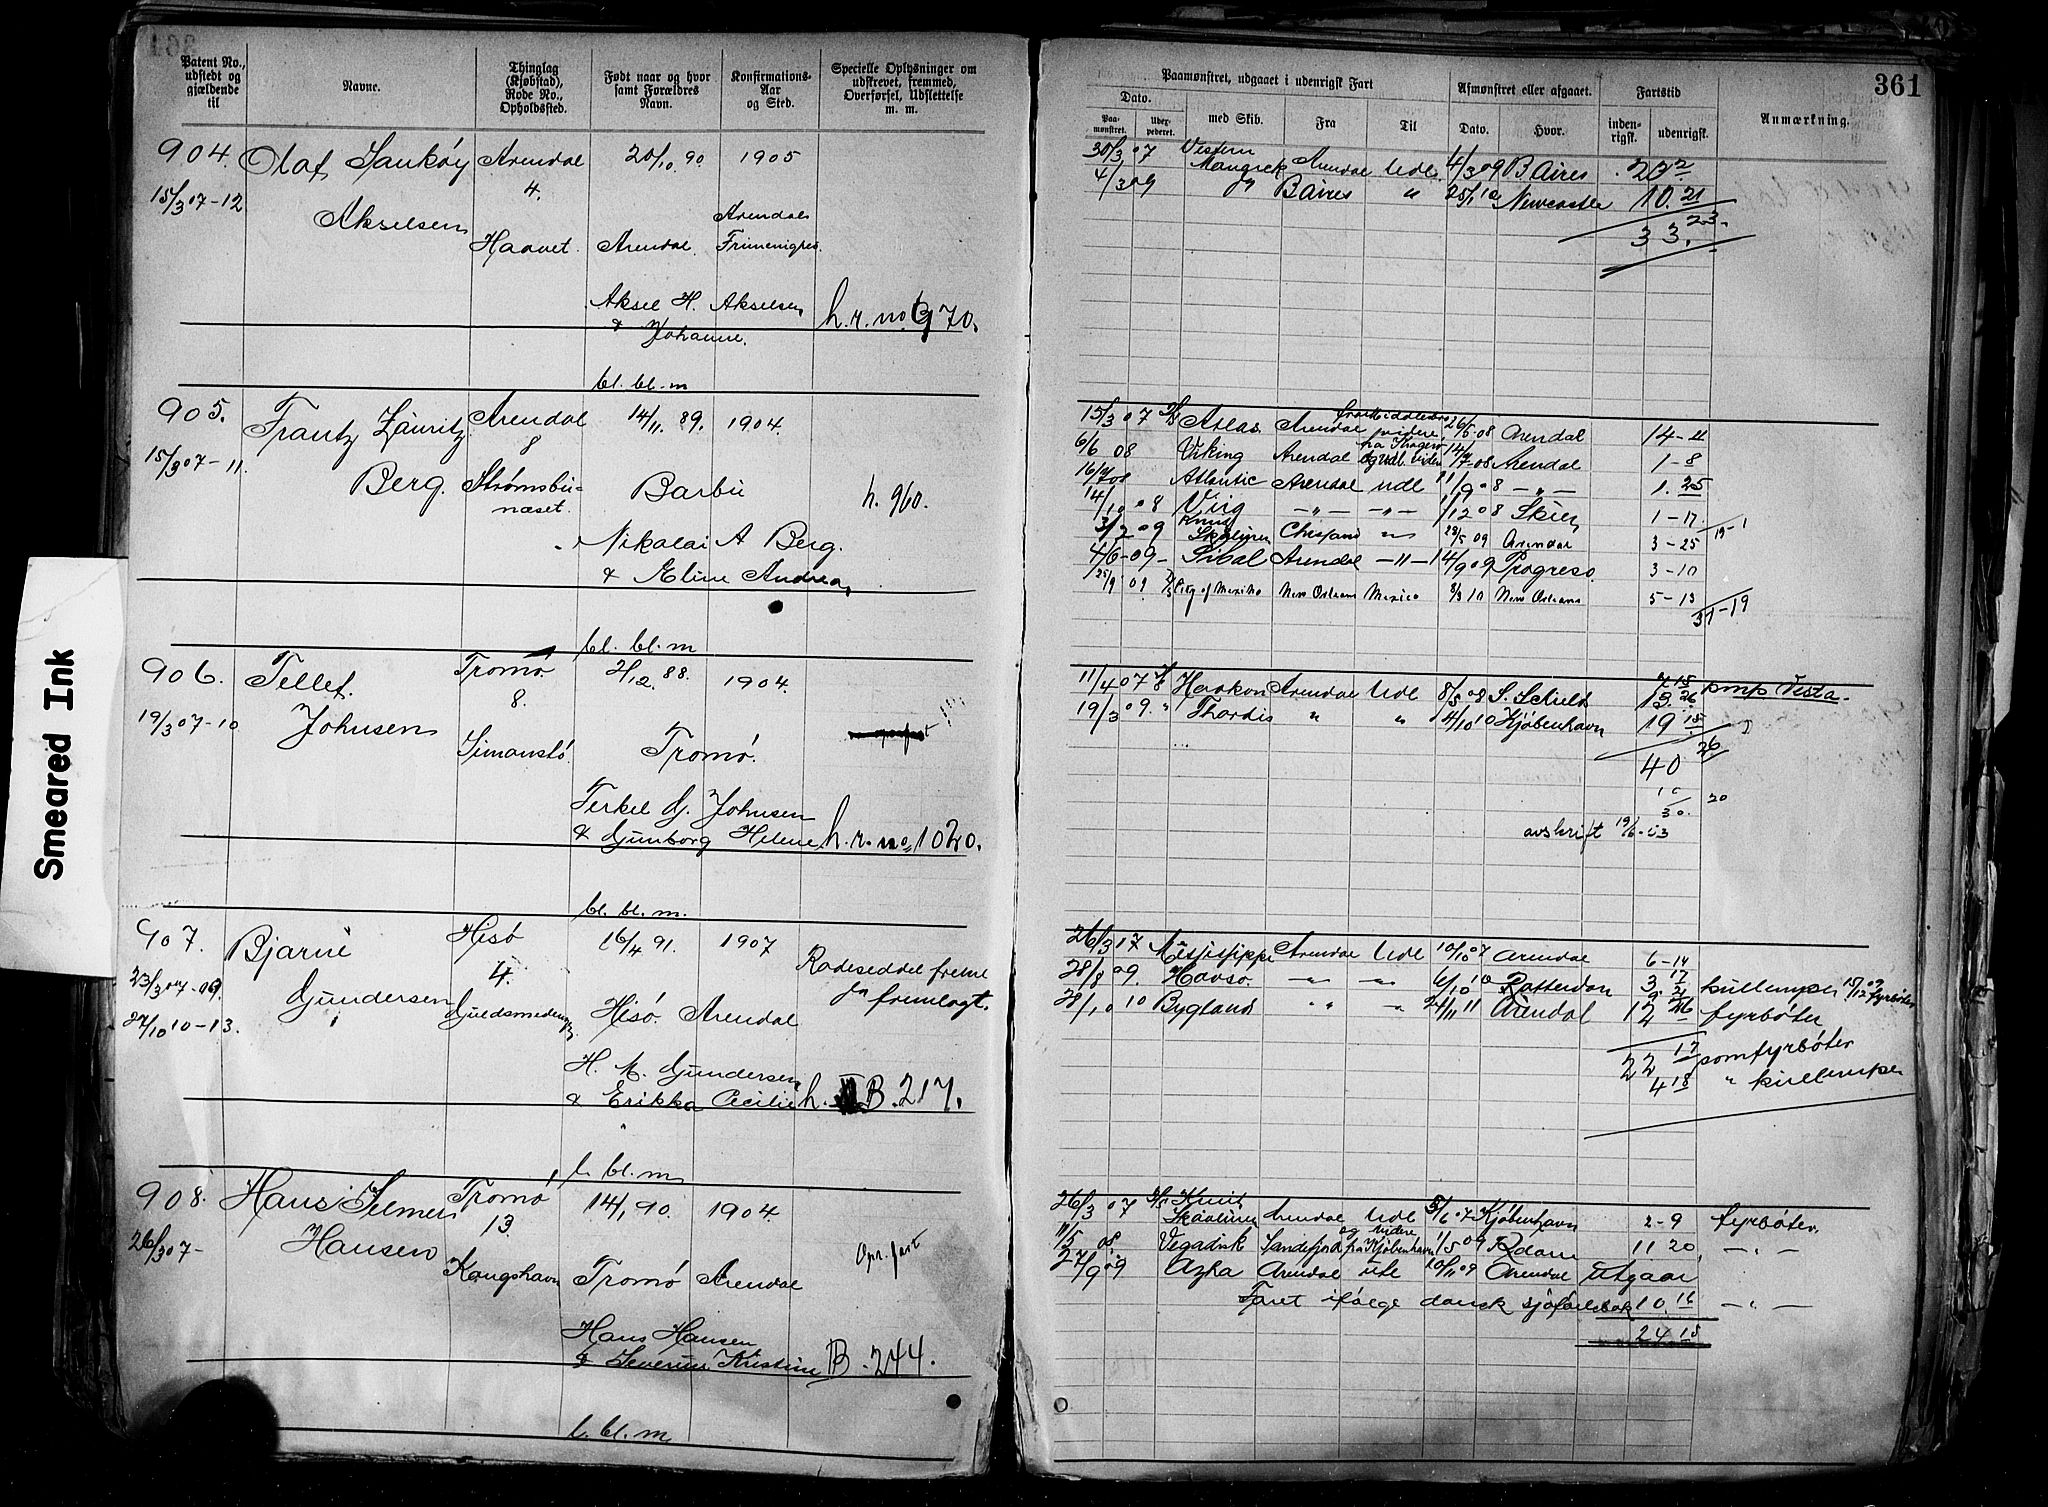 361
Patent No., udstedt og gjældende til
Navne.
Thinglag (Kjøbstad), Rode No., Opholdssted.
Født naar og hvor samt Forældres Navn.
Konfirmations-Aar og Sted.
Specielle Oplysninger om udskrevet, fremmed, Overførsel, Udslettelse m. m.
904. Olaf Aksel­sen Arendal 20/10 90 1905
15/3 07-12 4.
Haavet. Arendal. Arendals
Aksel H. Akselsen h.r. no. 970.
& Johanne.
bl. bl. m
905. Frantz Lauritz Arendal 14/11. 89. 1904.
15/3 07-11. 8
Berg. Strømsbu- Barbu h. 960.
næset.
Nikolai A Berg.
& Eline Andrea
bl. bl. m
906. Tellef Tromø 1904.
19/3 07-10 Johnsen 8.
Tromø.
Terkel G. Johnsen
& Gunborg Helene h. r. no. 1020.
bl. bl. m.
907. Bjarne Hisø 16/4 91. 1907
23/3 07-09. Gundersen 4.
27/10 10-13. Hisø. Arendal fremlagt.
H. M. Gundersen
& Erikka Cecilie h. B. 217.
l. bl. m
908. Hans Selmer Tromø 14/1 90. 1904.
26/3 07- Hansen 13. Opr. fart
Kongshavn Tromø Arendal
Hans Hansen
& Severine Kristine B. 244.
l. bl. m
Smeared Ink
Paamønstret, udgaaet i udenrigsk Fart
Afmønstret eller afgaaet.
Fartstid
361
Dato.
Paa-mønstret.
med Skib.
Fra
Til
Dato.
Hvor.
inden-rigsk.
udenrigsk.
Anmærkning.
30/3 07 Western
Arendal Udl. 4/3 09 B Aires
4/3 09 " B Aires " 25/1 10 Newcastle 10. 21
33. 23.
15/3 07 Atlas Arendal videre 26/5 08 Arendal 14-11
6/6 08 Viking Arendal Arendal 1-8
Atlantic Arendal udl 11/9 08 -„- 1. 25
14/10 08 Virg -„- -„- 1/12 08 Skien 1-17
3/2 09 Knud
Skaaluren Chrsand 28/5 09 Arendal 3-25
4/6-09- Sibal Arendal -"- 14/9 09 Progreso 3-10
25/9 09 City of Mexico New Orleans Mexico 8/3 10 New Orleans 5-13
31-19
11/4 07 Haakon Arendal Udl 8/5 08 S. Schields pmp Vesta.
19/3 09. " Thordis " " 4/10 10 Kjøbenhavn 19 15
26
40
10
20
30.
avskrift 19/6-53
26/3 17 Missisippi Arendal Udl 10/10 07 Arendal 6-14
28/8 09. Havsø. -"- -"- 6/10 10 Rotterdam 3. 17 kullemper 15/12 09 fyrbøter
28/10 10 Bygland " " 24/11 11 Arendal fyrbøter
22 17 som fyrbøter
4 18 " kullemper
26/3 07 Knut
Skaaluren Arendal Udl 5/6 07 Kjøbenhavn 2-9 fyrbøter.
og videre
11/5 08 Sandefjord fra Kjøbenhavn 1/5 09 Rdam 11 20. -„-
27/9 09 Azha Arendal ute 10/11 09 Arendal utgaar
Faret ifølge dansk sjøfartsbok 10. 16 -„-
24 15